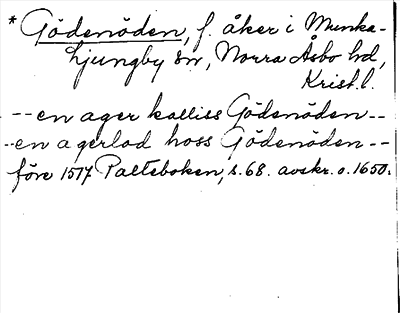 * Gödenöden, f. åker i Munka-
Ljungby sn, Norra Åsbo hd,
Krist. l.
-- en ager kalliss Gödenöden --
-- en agerlod hoss Gödenöden --
före 1517 Palteboken, s. 68. avskr. o. 1650.